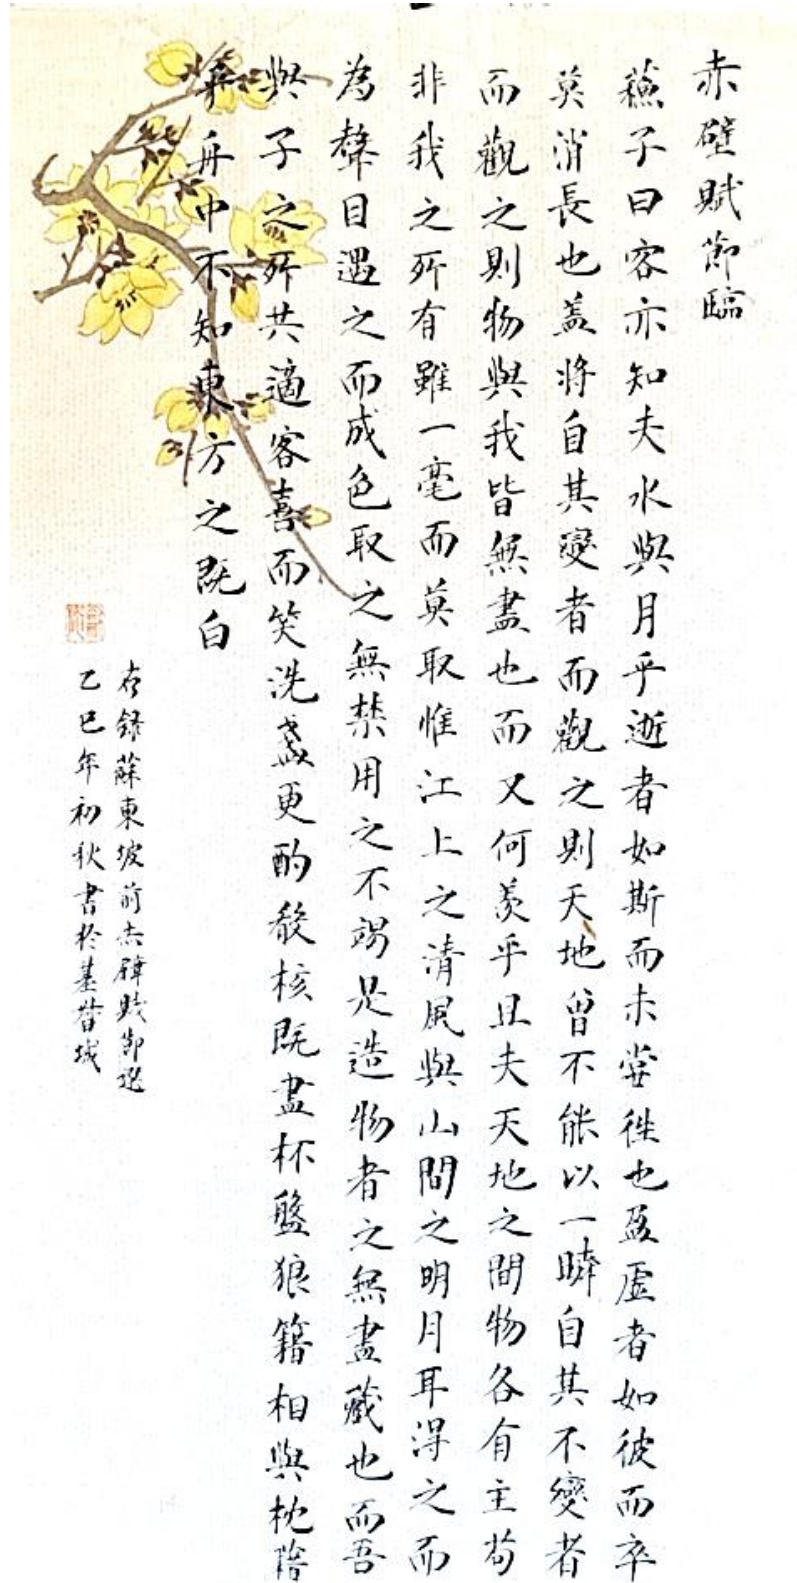 赤壁賦節臨
蘇子曰客亦知夫水與月乎逝者如斯而未嘗往也盈虛者如彼而卒
莫消長也蓋將自其變者而觀之則天地曾不能以一瞬自其不變者
而觀之則物與我皆無盡也而又何羨乎且夫天地之間物各有主苟
非我之所有雖一毫而莫取惟江上之清風與山間之明月耳得之而
為聲目遇之而成色取之無禁用之不竭是造物者之無盡藏也而吾
與子之所共適客喜而笑洗盞更酌殽核既盡杯盤狼籍相與枕
乎舟中不知東方之既白
右錄蘇東坡前赤壁賦節選
乙巳年初秋書於基督城